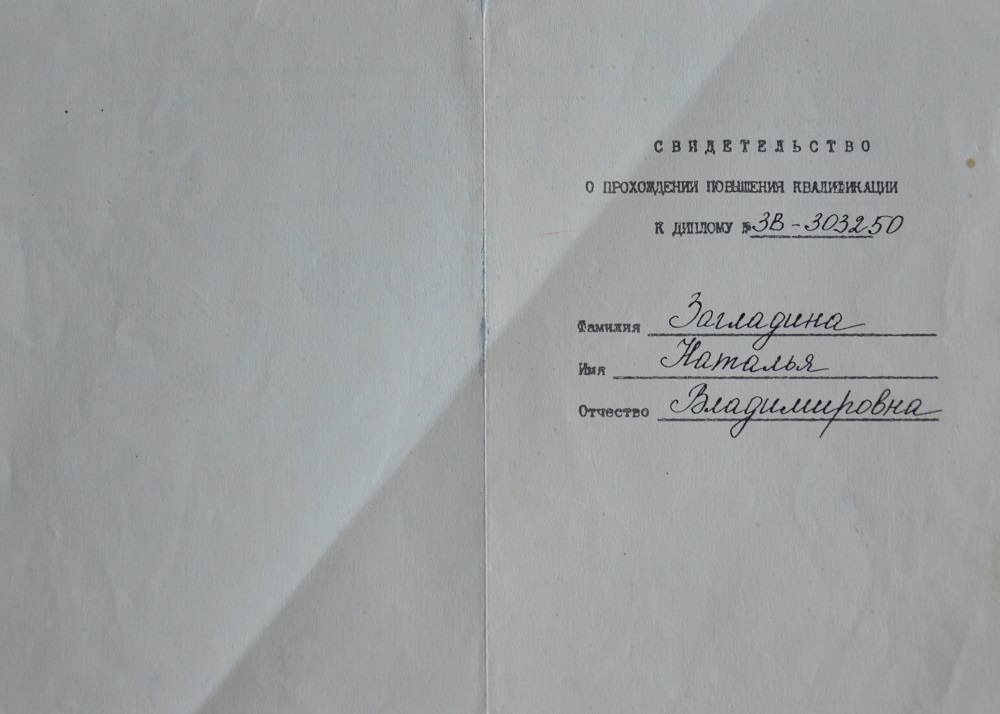 СВИДЕТЕЛЬСТВО
О ПРОХОЖДЕНИИ ПОВЫШЕНИЯ КВАЛИФИКАЦИИ
К ДИПЛОМУ № ЗВ-303250
Фамилия Загладина
Имя Наталья
Отчество Владимировна